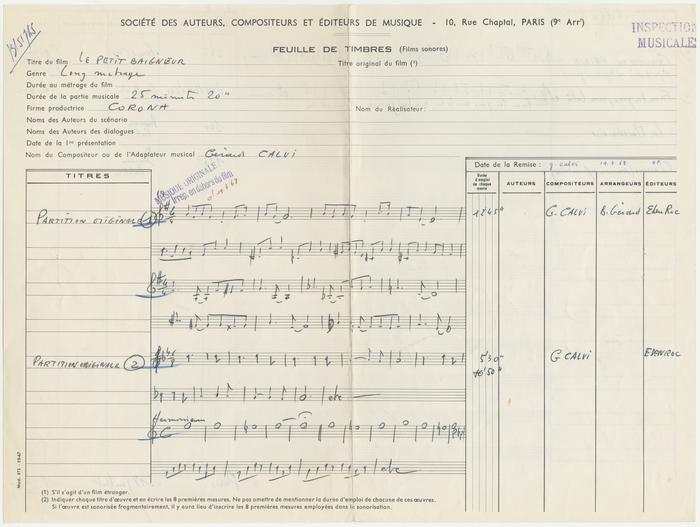 SOCIÉTÉ DES AUTEURS, COMPOSITEURS ET ÉDITEURS DE MUSIQUE - 10, Rue Chaptal, PARIS (9e Arrt)
INSPECTION
MUSICALE
FEUILLE DE TIMBRES (Films sonores)
Titre du film LE PETIT BAIGNEUR
Titre original du film (1)
Genre Long métrage
Durée ou métrage du film
Durée de la partie musicale 25 minutes 20"
Firme productrice CORONA
Nom du Réalisateur:
Noms des Auteurs du scénario
Noms des Auteurs des dialogues
Date de la 1re présentation
Nom du Compositeur ou de l'Adaptateur musical Gérard CALVI
Date de la Remise : g. calvi
TITRES
Durée d'emploi de chaque œuvre
AUTEURS
COMPOSITEURS
ARRANGEURS
ÉDITEURS
MUSIQUE ORIGINALE
en dehors du film
PARTITION ORIGINALE 1
12'45"
G. CALVI
B. Gérard
Eden Roc
PARTITION ORIGINALE 2
5'30"
G CALVI
EDEN ROC
etc
Harmonium
etc
Mod. 875 - 12-67
(1) S'il s'agit d'un film étranger.
(2) Indiquer chaque titre d'œuvre et en écrire les 8 premières mesures. Ne pas omettre de mentionner la durée d'emploi de chacune de ces œuvres.
Si l'œuvre est sonorisée fragmentairement, il y aura lieu d'inscrire les 8 premières mesures employées dans la sonorisation.